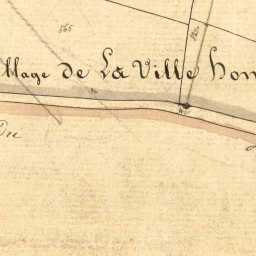 565
illage de La Ville hon
Du